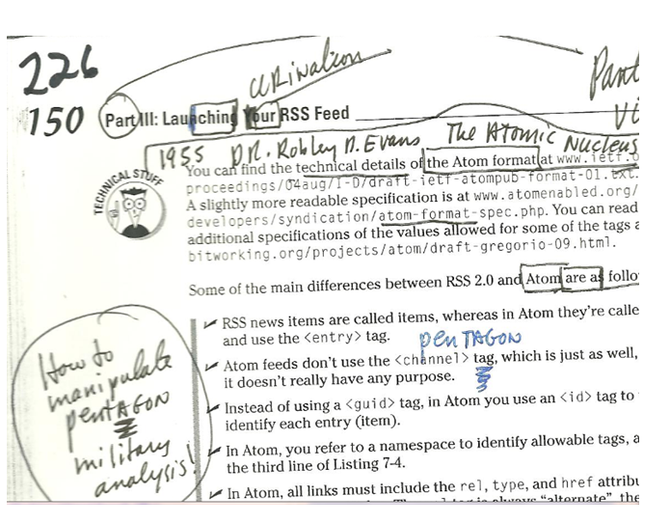 226
urination
Pant
150 Part III: Launching Your RSS Feed
vi
1955 DR. Robley D. Evans The Atomic Nucleus
TECHNICAL STUFF
You can find the technical details of the Atom format at www.ietf.o
proceedings/04aug/I-D/draft-ietf-atompub-format-01.txt.
A slightly more readable specification is at www.atomenabled.org/
developers/syndication/atom-format-spec.php. You can read
additional specifications of the values allowed for some of the tags a
bitworking.org/projects/atom/draft-gregorio-09.html.
Some of the main differences between RSS 2.0 and Atom are as follo
RSS news items are called items, whereas in Atom they're calle
and use the <entry> tag.
pentagon
Atom feeds don't use the <channel> tag, which is just as well,
it doesn't really have any purpose.
Instead of using a <guid> tag, in Atom you use an <id> tag to
identify each entry (item).
In Atom, you refer to a namespace to identify allowable tags, a
the third line of Listing 7-4.
In Atom, all links must include the rel, type, and href attribu
is always "alternate", the
How to
manipulate
pentAGON
military
analysis!